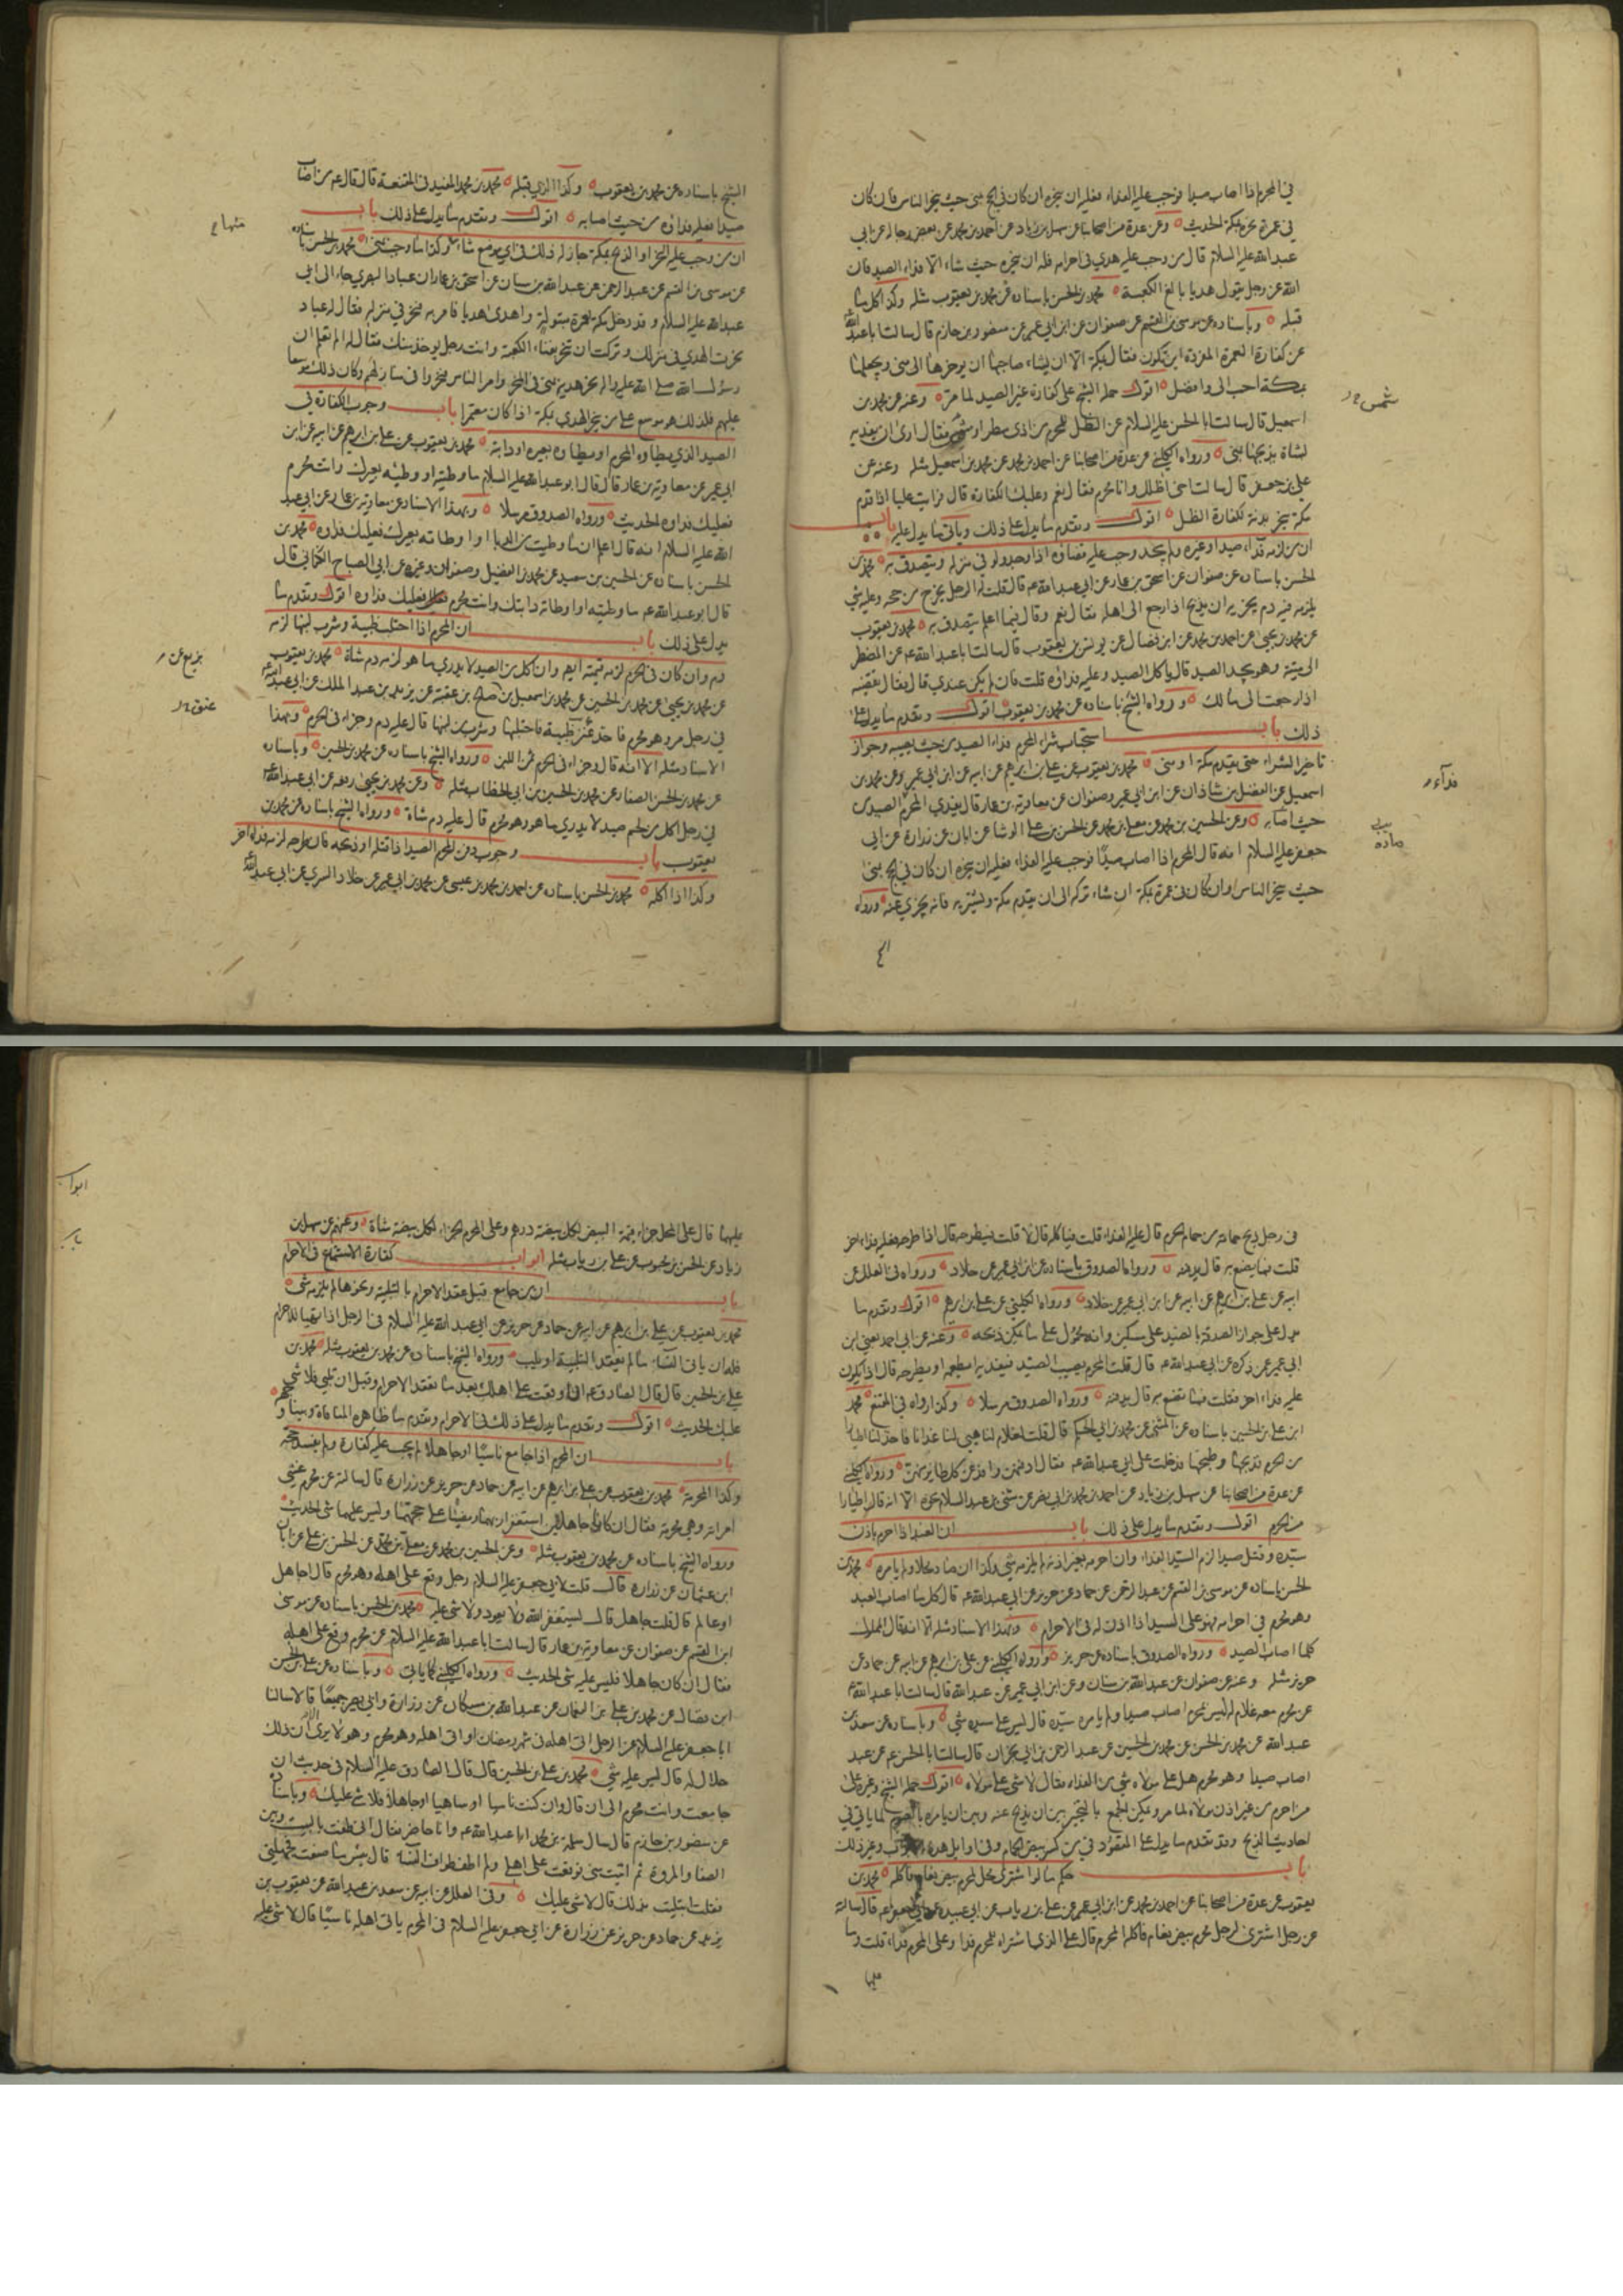 في المحرم اذا اصاب صيدا فوجب عليه الفداء فعليه ان ينحره ان كان في الحج بمنى حيث ينحر الناس فان كان
في عمرة نحره بمكة الحديث وعن عدة من اصحابنا عن سهل بن زياد عن احمد بن محمد عن بعض رجاله عن ابي
عبد الله عليه السلام قال من وجب عليه هدي في احرامه فله ان ينحره حيث شاء الا فداء الصيد فان
الله عز وجل يقول هديا بالغ الكعبة محمد بن الحسن باسناده عن محمد بن يعقوب مثله وكذا كل ما
قبله وباسناده عن موسى بن القسم عن صفوان عن ابن ابي عمير عن منصور بن حازم قال سالت ابا عبد الله
عن كفارة العمرة المفردة اين تكون فقال بمكة الا ان يشاء صاحبها ان يؤخرها الى منى ويجعلها
بمكة احب الى وافضل اقول حمله الشيخ على كفارة غير الصيد لما مر وعنه عن محمد بن
اسمعيل قال سالت ابا الحسن عليه السلام عن الظل للمحرم من اذى مطر او شمس فقال ارى ان يفديه
بشاة يذبحها بمنى ورواه الكليني عن عدة من اصحابنا عن احمد بن محمد عن محمد بن اسمعيل مثله وعنه عن
علي بن جعفر قال سالت اخي اظلل وانا محرم فقال نعم وعليك الكفارة قال فرايت عليا اذا قدم
مكة ينحر بدنة لكفارة الظل اقول وتقدم ما يدل على ذلك وياتي ما يدل عليه باب
ان من لزمه فداء صيد او غيره ولم يجد وجب عليه قضاؤه اذا وجد ولو في منزله ويتصدق به محمد بن
الحسن باسناده عن صفوان عن اسحق بن عمار عن ابي عبد الله ع قال قلت له الرجل يخرج من حجه وعليه شي
يلزمه فيه دم يجزيه ان يذبح اذا رجع الى اهله فقال نعم وقال فيما اعلم يتصدق به محمد بن يعقوب
عن محمد بن يحيى عن احمد بن محمد عن ابن فضال عن يونس بن يعقوب قال سالت ابا عبد الله ع عن المضطر
الى ميتة وهو يجد الصيد قال ياكل الصيد وعليه فداؤه قلت فان لم يكن عندي قال فقال تقضيه
اذا رجعت الى مالك ورواه الشيخ باسناده عن محمد بن يعقوب اقول وتقدم ما يدل على
ذلك باب استحباب شراء المحرم فداء الصيد من حيث يصيبه وجواز
تاخير الشراء حتى يقدم مكة او منى محمد بن يعقوب عن علي بن ابرهيم عن ابيه عن ابن ابي عمير وعن محمد بن
اسمعيل عن الفضل بن شاذان عن ابن ابي عمير وصفوان عن معاوية بن عمار قال يفدي المحرم الصيد من
حيث اصابه وعن الحسين بن محمد عن معلى بن محمد عن الحسن بن علي الوشا عن ابان عن زرارة عن ابي
جعفر عليه السلام انه قال المحرم اذا اصاب صيدا فوجب عليه الفداء فعليه ان ينحره ان كان في الحج بمنى
حيث ينحر الناس او ان كان في عمرة بمكة ان شاء تركه الى ان يقدم مكة ويشتريه فانه يجزي عنه ورواه
الشيخ باسناده عن محمد بن يعقوب وكذا الذي قبله محمد بن محمد المفيد في المقنعة قال قال ع من اصاب
صيدا فعليه فداؤه من حيث اصابه اقول وتقدم ما يدل على ذلك باب
ان من وجب عليه النحر او الذبح بمكة جاز له ذلك في اي موضع شاء منها وكذا ما وجب بمنى محمد بن الحسن باسناده
عن موسى بن القسم عن عبد الرحمن عن عبد الله بن سنان عن اسحق بن عمار ان عبادا البصري جاء الى ابي
عبد الله عليه السلام وقد دخل مكة بعمرة مبتولة واهدى هديا فامر به فنحر في منزله فقال له عباد
نحرت الهدي في منزلك وتركت ان تنحره بفناء الكعبة وانت رجل يؤخذ منك فقال له الم تعلم ان
رسول الله صلى الله عليه واله نحر هديه بمنى في المنحر وامر الناس فنحروا في منازلهم وكان ذلك موسعا
عليهم فلذلك هو موسع على من ينحر الهدي بمكة اذا كان معتمرا باب وجوب الكفارة في
الصيد الذي يطاؤه المحرم او يطاؤه بعيره او دابته محمد بن يعقوب عن علي بن ابرهيم عن ابيه عن ابن
ابي عمير عن معاوية بن عمار قال قال ابو عبد الله عليه السلام ما وطئته او وطئه بعيرك وانت محرم
فعليك فداؤه الحديث ورواه الصدوق مرسلا وبهذا الاسناد عن معاوية بن عمار عن ابي عبد
الله عليه السلام انه قال اعلم ان ما وطئت من الدبا او اوطاته بعيرك فعليك فداؤه محمد بن
الحسن باسناده عن الحسين بن سعيد عن محمد بن الفضيل وصفوان وغيره عن ابي الصباح الكناني قال
قال ابو عبد الله ع ما وطئته او اوطاته دابتك وانت محرم فعليك فداؤه اقول وتقدم ما
يدل على ذلك باب ان المحرم اذا احتلب ظبية وشرب لبنها لزمه
دم وان كان في الحرم لزمه قيمته ايضا وان اكل من الصيد لا يدري ما هو لزمه دم شاة محمد بن يعقوب
عن محمد بن يحيى عن محمد بن الحسين عن محمد بن اسمعيل عن صالح بن عقبة عن يزيد بن عبد الملك عن ابي عبد الله
في رجل مر وهو محرم فاخذ عنز ظبية فاحتلبها وشرب من لبنها قال عليه دم وجزاء في الحرم وبهذا
الاسناد مثله الا انه قال وجزاء في الحرم ثمن اللبن ورواه الشيخ باسناده عن محمد بن الحسين وباسناده
عن محمد بن الحسن الصفار عن محمد بن الحسين بن ابي الخطاب مثله وعن محمد بن يحيى رفعه عن ابي عبد الله ع
في رجل اكل من لحم صيد لا يدري ما هو وهو محرم قال عليه دم شاة ورواه الشيخ باسناده عن محمد بن
يعقوب باب وجوب دفن المحرم الصيد اذا قتله او ذبحه فان طرحه لزمه فداء اخر
وكذا اذا اكله محمد بن الحسن باسناده عن احمد بن محمد بن عيسى عن محمد بن ابي عمير عن خلاد السري عن ابي عبد الله
في رجل ذبح حمامة من حمام الحرم قال عليه الفداء قلت فياكله قال لا قلت فيطرحه قال اذا طرحه فعليه فداء اخر
قلت فما يصنع به قال يدفنه ورواه الصدوق باسناده عن ابن ابي عمير عن خلاد ورواه في العلل عن
ابيه عن علي بن ابرهيم عن ابيه عن ابن ابي عمير عن خلاد ورواه الكليني عن علي بن ابرهيم اقول وتقدم ما
ابي عمير عمن ذكره عن ابي عبد الله ع قال قلت المحرم يصيب الصيد فيفديه ايطعمه او يطرحه قال اذا يكون
عليه فداء اخر فقلت فما يصنع به قال يدفنه ورواه الصدوق مرسلا وكذا رواه في المقنع محمد
ابن علي بن الحسين باسناده عن المثنى عن محمد بن ابي الحكم قال قلت لغلام لنا هيئ لنا غدانا فاخذ لنا اطيارا
من الحرم فذبحها وطبخها فدخلت على ابي عبد الله ع فقال ادفنهن وافد عن كل طاير منهن ورواه الكليني
من الحرم اقول وتقدم ما يدل على ذلك باب ان العبد اذا احرم باذن
سيده وقتل صيدا لزم السيد الفداء وان احرم بغير اذنه لم يلزمه شي وكذا ان صاد محلا ولم يامره محمد بن
الحسن باسناده عن موسى بن القسم عن عبد الرحمن عن حماد عن حريز عن ابي عبد الله ع قال كل ما اصاب العبد
وهو محرم في احرامه فهو على السيد اذا اذن له في الاحرام وبهذا الاسناد مثله الا انه قال المملوك
كلما اصاب الصيد ورواه الصدوق باسناده عن حريز ورواه الكليني عن علي بن ابرهيم عن ابيه عن حماد عن
حريز مثله وعنه عن صفوان عن عبد الله بن سنان وعن ابن ابي عمير عن عبد الله قال سالت ابا عبد الله ع
عن محرم معه غلام له ليس بمحرم اصاب صيدا ولم يامره سيده قال ليس على سيده شي وباسناده عن سعد بن
عبد الله عن محمد بن الحسن عن محمد بن الحسين عن عبد الرحمن بن ابي نجران قال سالت ابا الحسن ع عن عبد
اصاب صيدا وهو محرم هل على مولاه شي من الفداء فقال لا شي على مولاه اقول حمله الشيخ وغيره على
باب حكم ما لو اشترى محل لمحرم بيض نعام فاكله محمد بن
يعقوب عن عدة من اصحابنا عن احمد بن محمد عن ابن ابي عمير عن علي بن رياب عن ابي عبيدة عن ابي جعفر ع قال سالته
عن رجل اشترى لرجل محرم بيض نعام فاكله المحرم قال على الذي اشتراه للمحرم فداء وعلى المحرم فداء قلت وما
عليهما قال على المحل جزاء قيمة البيض لكل بيضة درهم وعلى المحرم الجزاء لكل بيضة شاة وعنهم عن سهل بن
زياد عن الحسن بن محبوب عن علي بن رياب مثله ابواب كفارة الاستمتاع في الاحرام
باب ان من جامع قبل عقد الاحرام بالتلبية ونحوها لم يلزمه شي
محمد بن يعقوب عن علي بن ابرهيم عن ابيه عن حماد عن حريز عن ابي عبد الله عليه السلام في الرجل اذا تهيا للاحرام
فله ان ياتي النساء ما لم يعقد التلبية او يلب ورواه الشيخ باسناده عن محمد بن يعقوب مثله محمد بن
علي بن الحسين قال قال الصادق ع ان وقعت على اهلك بعد ما تعقد الاحرام وقبل ان تلبي فلا شي
عليك الحديث اقول وتقدم ما يدل على ذلك في الاحرام وتقدم ما ظاهره المنافاة وبينا وجهه
باب ان المحرم اذا جامع ناسيا او جاهلا لم يجب عليه كفارة ولم يفسد حجه
وكذا المحرمة محمد بن يعقوب عن علي بن ابرهيم عن ابيه عن حماد عن حريز عن زرارة قال سالته عن محرم غشي
امراته وهي محرمة فقال ان كانا جاهلين استغفرا ربهما ومضيا على حجهما وليس عليهما شي الحديث
ورواه الشيخ باسناده عن محمد بن يعقوب مثله وعن الحسين بن محمد عن معلى بن محمد عن الحسن بن علي عن ابان
ابن عثمان عن زرارة قال قلت لابي جعفر عليه السلام رجل وقع على اهله وهو محرم قال اجاهل
او عالم قال قلت جاهل قال يستغفر الله ولا يعود ولا شي عليه محمد بن الحسن باسناده عن موسى
ابن القسم عن صفوان عن معاوية بن عمار قال سالت ابا عبد الله عليه السلام عن محرم وقع على اهله
فقال ان كان جاهلا فليس عليه شي الحديث ورواه الكليني كما ياتي وباسناده عن علي بن الحسن
ابن فضال عن محمد بن علي بن النعمان عن عبد الله بن مسكان عن زرارة وابي بصير جميعا قالا سالنا
ابا جعفر عليه السلام عن الرجل اتى اهله في شهر رمضان او اتى اهله وهو محرم وهو لا يرى الا ان ذلك
حلال له قال ليس عليه شي محمد بن علي بن الحسين قال قال الصادق عليه السلام في حديث ان
جامعت وانت محرم الى ان قال وان كنت ناسيا او ساهيا او جاهلا فلا شي عليك وباسناده
عن منصور بن حازم قال سال سلمة بن محرز ابا عبد الله ع وانا حاضر فقال اني طفت بالبيت وبين
الصفا والمروة ثم اتيت منى فوقعت على اهلي ولم اطف طواف النساء قال بئس ما صنعت فجهلني
فقلت ابتليت بذلك قال لا شي عليك وفي العلل عن ابيه عن سعد بن عبد الله عن يعقوب بن
يزيد عن حماد عن حريز عن زرارة عن ابي جعفر عليه السلام في المحرم ياتي اهله ناسيا قال لا شي عليه